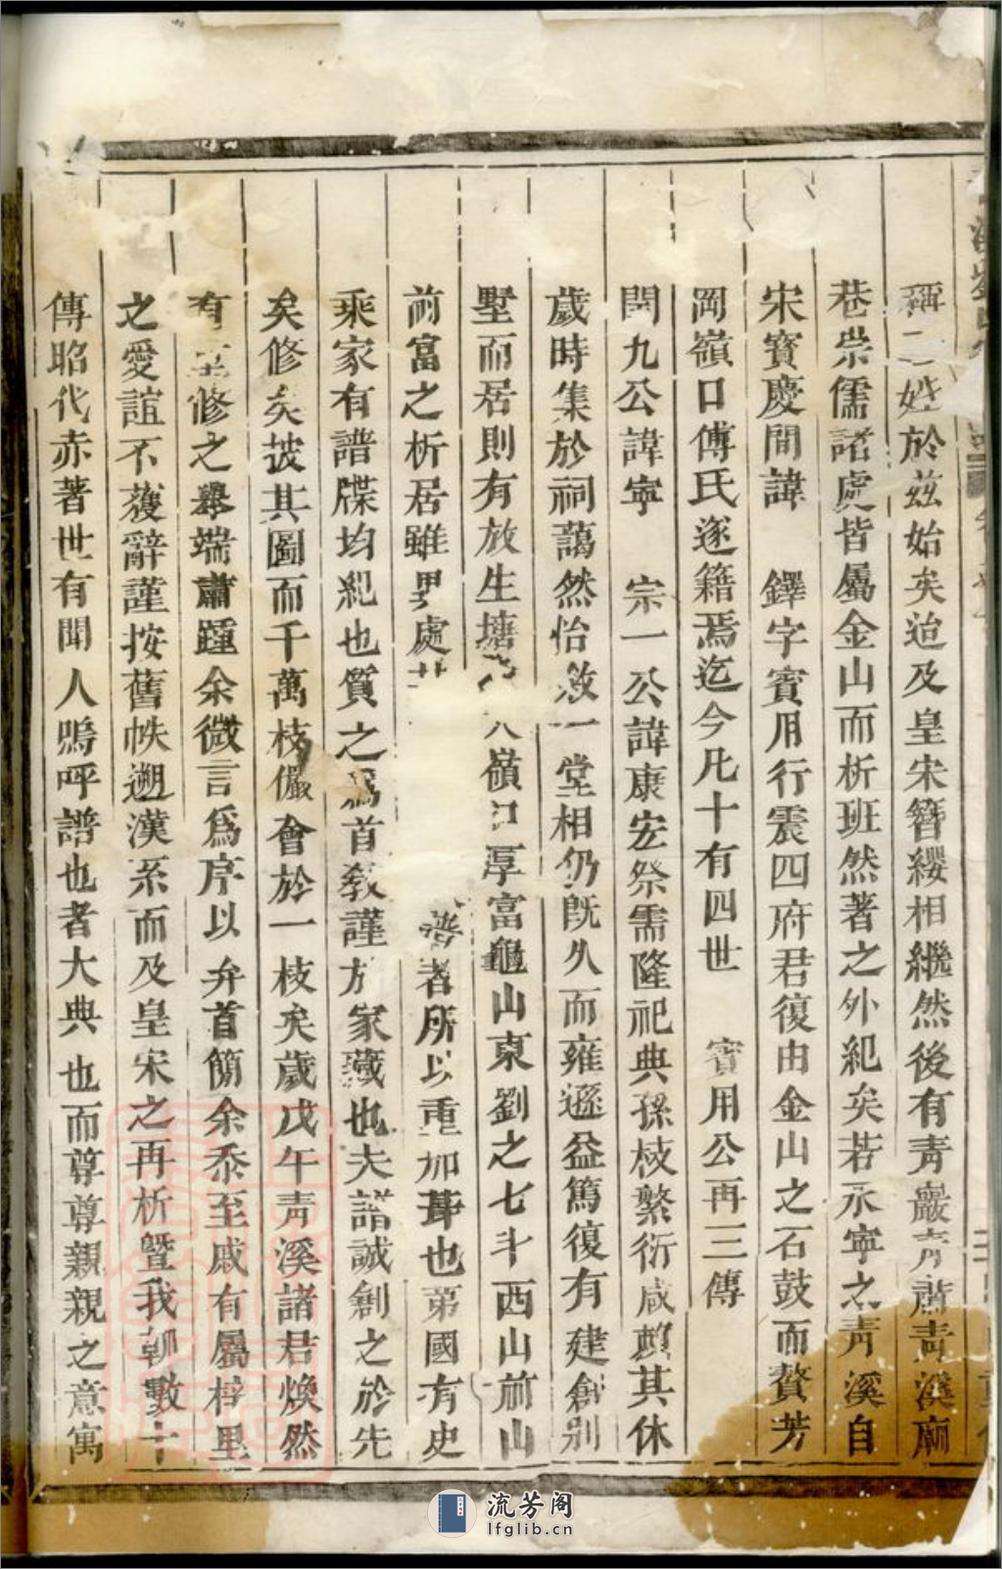 稱二姓於茲始矣迨及皇宋簪纓相繼然後有青巖青蕭青溪廟
巷崇儒諸處皆屬金山而析班然著之外紀矣若永寧之青溪自
宋寶慶間諱 鐸字賓用行震四府君復由金山之石鼓而贅芳
岡嶺口傅氏遂籍焉迄今凡十有四世 賓用公再三傳
閏九公諱寧 宗一公諱康宏祭需隆祀典孫枝繁衍咸賴其休
歲時集於祠藹然怡然一堂相仍既久而雍遜益篤復有建創別
墅而居則有放生塘 嶺口厚富龜山東劉之七斗西山前山
前富之析居雖異處 譜者所以重加葺也第國有史
乘家有譜牒均紀也質之爲首敦謹於家藏也夫諸誠創之於先
矣修矣披其圖而千萬枝儼會於一枝矣歲戊午青溪諸君煥然
有 修之舉端肅踵余微言爲序以弁首簡余忝至戚有屬梓里
之愛誼不獲辭謹按舊帙遡漢系而及皇宋之再析暨我朝數十
傳昭代赤著世有聞人嗚呼譜也者大典也而尊尊親親之意寓
流芳阁
lfglib.cn